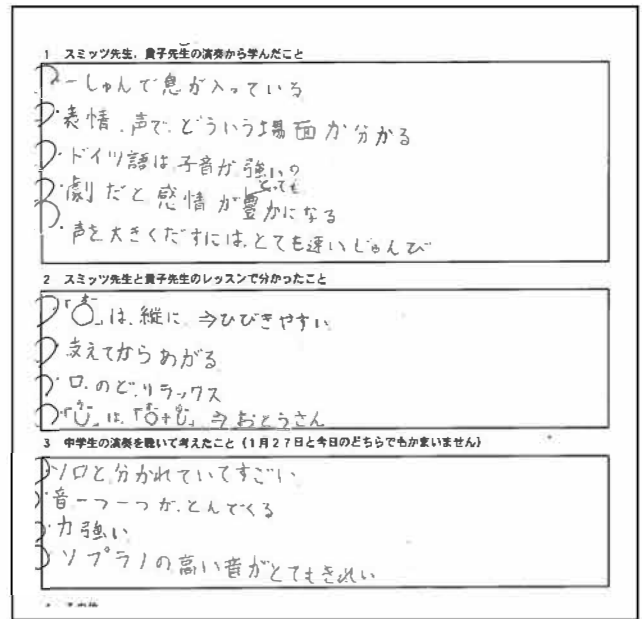 1 スミッツ先生、貴子先生の演奏から学んだこと
・一しゅんで息が入っている
・表情、声で、どういう場面か分かる
・ドイツ語は、子音が強い
・劇だと感情がとっても豊かになる
・声を大きくだすには、とても速いじゅんび
2 スミッツ先生と貴子先生のレッスンで分かったこと
・「は、縦に ⇒ひびきやすい
・支えてからあがる
・口、のど、リラックス
・は、 ⇒ おとうさん
3 中学生の演奏を聴いて考えたこと（1月27日と今日のどちらでもかまいません）
・ソロと分かれていてすごい
・音一つ一つが、とんでくる
・力強い
・ソプラノの高い音がとてもきれい